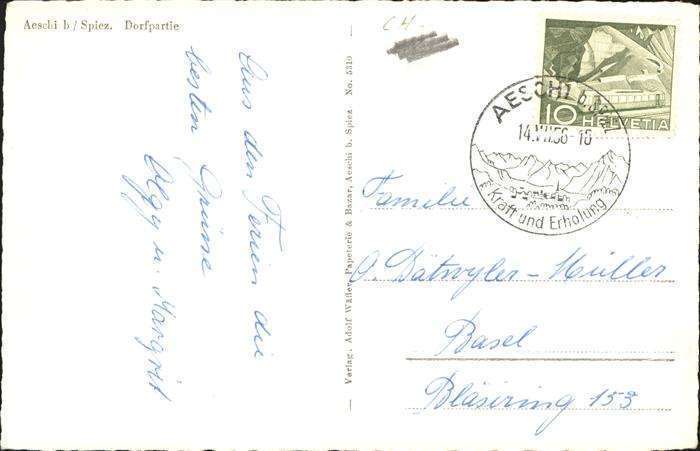 Aeschi b / Spiez. Dorfpartie
CH.
Aus den Ferien die
besten Grüsse
Olgy u. Margrit
Verlag. Adolf Wäfler, Papeterie & Bazar, Aeschi b. Spiez No. 5310
10 HELVETIA
AESCHI b. Spiez
14.VII.56-10
Kraft und Erholung
Familie
O. Dätwyler-Müller
Basel
Bläsiring 153